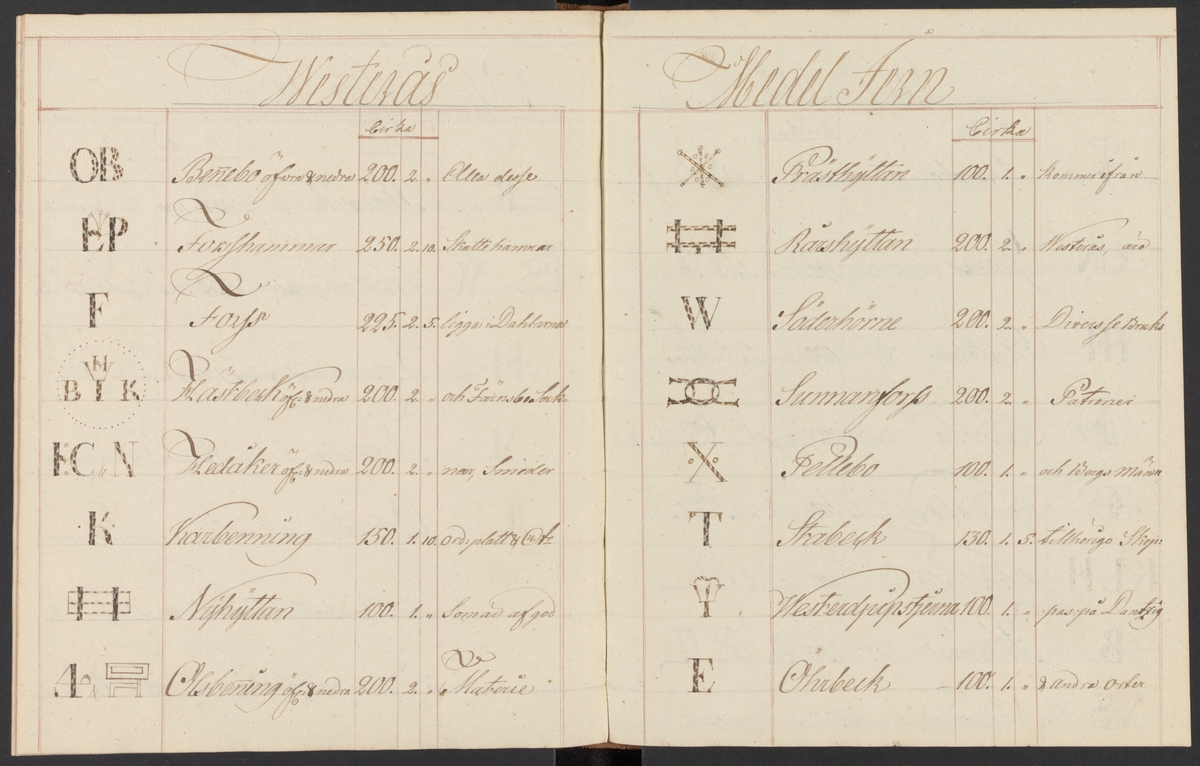 Westerås
Cirka
OB Bennebo öfvra & nedra 200. 2. " Alla desse
EP Forsshammar 250. 2. 10. Skatte hamrar
F Forss 225. 2. 5. ligga i Dahlarna
H BYK Hästbeck öf: & nedra 200. 2. " och
KC N Hedåker öf: & nedra 200. 2. " nor, Smider
K Karbenning 150. 1. 10. ord: platt &
Nyhÿttan 100. 1. " Som är af god
4 Olsbenning öf: & nedra 200. 2. " Materie
Medel Jern
Cirka
Prästhÿttan 100. 1. " kommer ifrån
Råxhÿttan 200. 2. " Westerås, äro
W Söderhörne 200. 2. " Diversse Bruks
Sunnansforss 200. 2. " Patroner
Fellebo 100. 1. " och Bergs männ
T Stabeck 130. 1. 5. tillhörige Skep:
Westerdjupstjerna 100. 1. " pas på Dantzig
E Öhrbeck 100. 1. " & andra orter